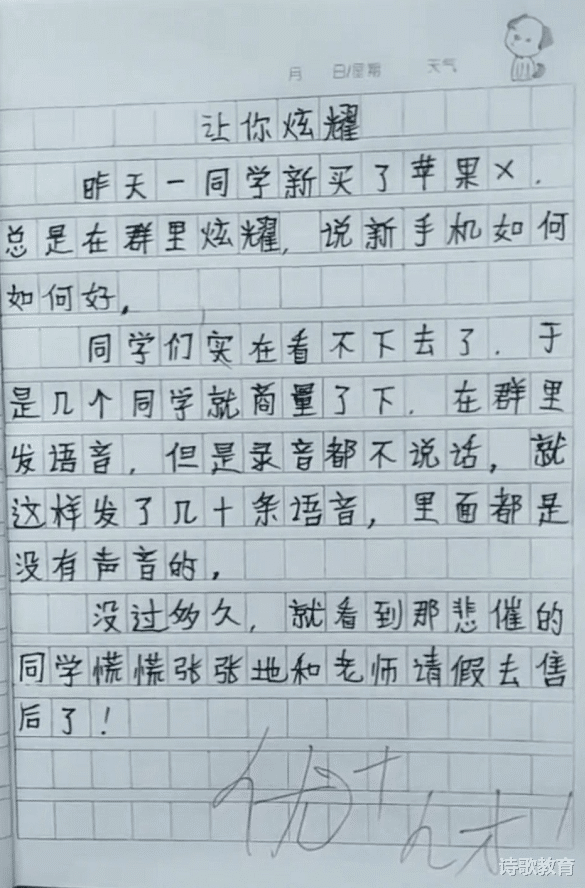 月 日/星期 天气
让你炫耀
昨天一同学新买了苹果X.
总是在群里炫耀,说新手机如何
如何好.
同学们实在看不下去了.于
是几个同学就商量了下.在群里
发语音,但是录音都不说话,就
这样发了几十条语音,里面都是
没有声音的,
没过多久,就看到那悲催的
同学慌慌张张地和老师请假去售
后了!
优+
诗歌教育